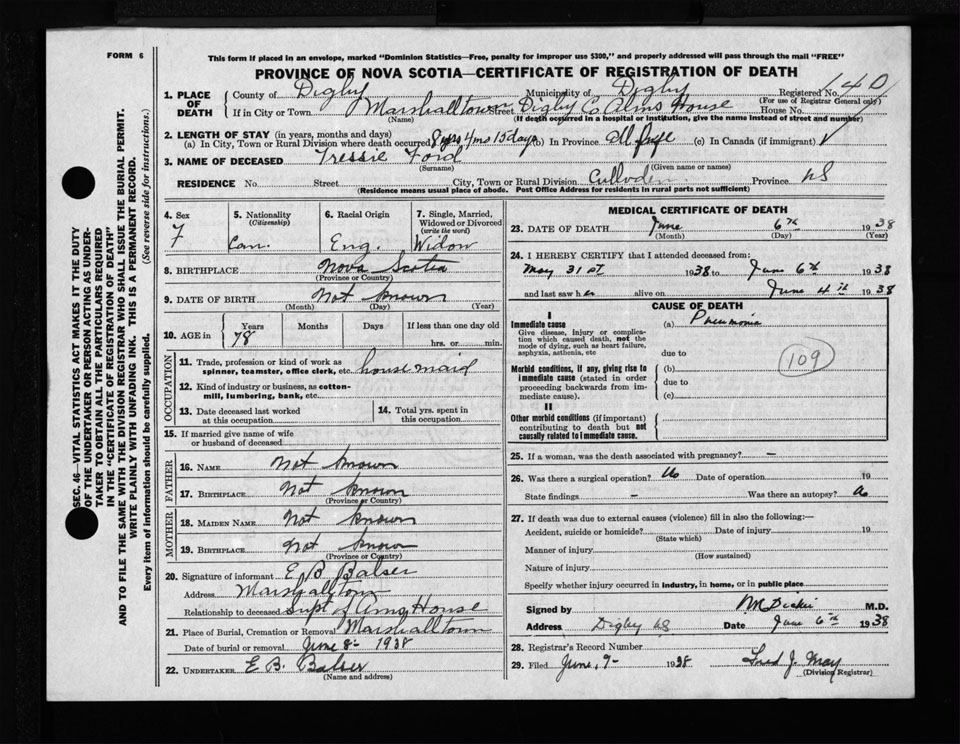 FORM 6
This form if placed in an envelope, marked "Dominion Statistics—Free, penalty for improper use $300," and properly addressed will pass through the mail "FREE"
PROVINCE OF NOVA SCOTIA—CERTIFICATE OF REGISTRATION OF DEATH
1. PLACE OF DEATH { County of Digby Municipality of Digby Registered No. 140
(For use of Registrar General only)
If in City or Town Marshalltown Street Digby Co Alms House House No.
(Name) (If death occurred in a hospital or institution, give the name instead of street and number)
2. LENGTH OF STAY (in years, months and days)
(a) In City, Town or Rural Division where death occurred 8 yrs 4 mo 15 days (b) In Province All life (c) In Canada (if immigrant)
3. NAME OF DECEASED Tressie Ford
(Surname) (Given name or names)
RESIDENCE No. Street City, Town or Rural Division Culloden Province NS
(Residence means usual place of abode. Post Office Address for residents in rural parts not sufficient)
4. Sex F
5. Nationality (Citizenship) Can.
6. Racial Origin Eng.
7. Single, Married, Widowed or Divorced (write the word) Widow
8. BIRTHPLACE Nova Scotia
(Province or Country)
9. DATE OF BIRTH Not known
(Month) (Day) (Year)
10. AGE in { Years 78 Months Days If less than one day old
hrs. or min.
OCCUPATION
11. Trade, profession or kind of work as spinner, teamster, office clerk, etc. house maid
12. Kind of industry or business, as cotton-mill, lumbering, bank, etc.
13. Date deceased last worked at this occupation
14. Total yrs. spent in this occupation
15. If married give name of wife or husband of deceased
FATHER
16. NAME Not known
17. BIRTHPLACE Not known
(Province or Country)
MOTHER
18. MAIDEN NAME Not known
19. BIRTHPLACE Not known
(Province or Country)
20. Signature of informant E B Balser
Address Marshalltown
Relationship to deceased Supt of Alms House
21. Place of Burial, Cremation or Removal Marshalltown
Date of burial or removal June 8 - 1938
22. UNDERTAKER E B. Balser
(Name and address)
MEDICAL CERTIFICATE OF DEATH
23. DATE OF DEATH June 6th 1938
(Month) (Day) (Year)
24. I HEREBY CERTIFY that I attended deceased from:
May 31st 1938 to June 6th 1938
and last saw her alive on June 4th 1938
CAUSE OF DEATH
I
Immediate cause (a) Pneumonia
Give disease, injury or complication which caused death, not the mode of dying, such as heart failure, asphyxia, asthenia, etc
due to
109
Morbid conditions, if any, giving rise to immediate cause (stated in order proceeding backwards from immediate cause). (b)
due to
(c)
II
Other morbid conditions (if important) contributing to death but not causally related to immediate cause.
25. If a woman, was the death associated with pregnancy? —
26. Was there a surgical operation? No Date of operation 19
State findings - Was there an autopsy? No
27. If death was due to external causes (violence) fill in also the following:—
Accident, suicide or homicide? Date of injury 19
(State which)
Manner of injury
(How sustained)
Nature of injury
Specify whether injury occurred in industry, in home, or in public place
Signed by Dickie M.D.
Address Digby NS Date June 6th 1938
28. Registrar's Record Number
29. Filed June, 9 - 1938 Fred J. May
(Division Registrar)
SEC. 46—VITAL STATISTICS ACT MAKES IT THE DUTY
OF THE UNDERTAKER OR PERSON ACTING AS UNDER-
TAKER TO OBTAIN ALL THE PARTICULARS REQUIRED
IN THE "CERTIFICATE OF REGISTRATION OF DEATH"
AND TO FILE THE SAME WITH THE DIVISION REGISTRAR WHO SHALL ISSUE THE BURIAL PERMIT.
WRITE PLAINLY WITH UNFADING INK. THIS IS A PERMANENT RECORD.
Every item of information should be carefully supplied. (See reverse side for instructions.)